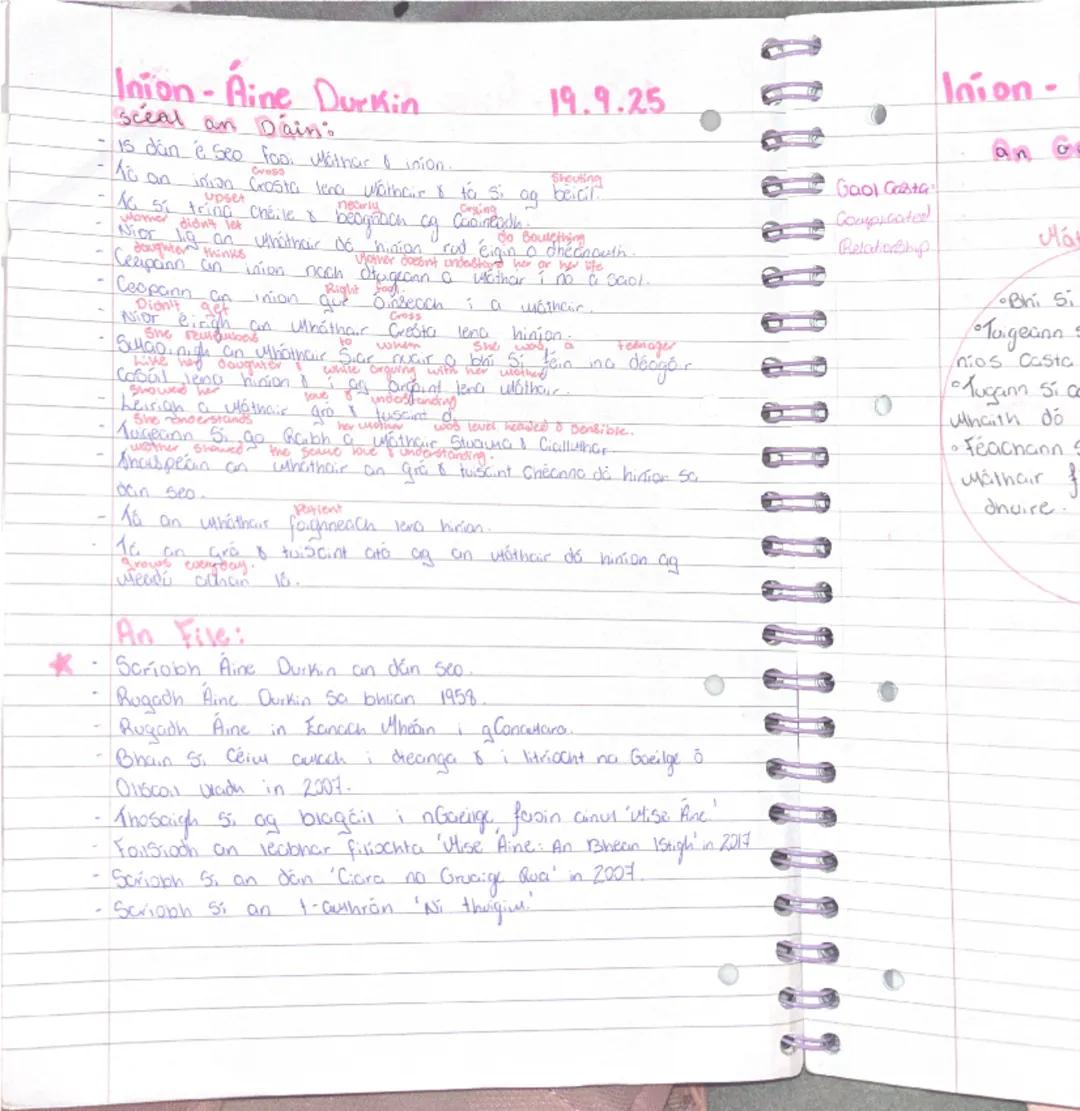 Iníon - Áine Durkin 19.9.25
Scéal an Dáin:
- Is dán é seo faoi Mháthar & iníon.
Cross Shouting
- Tá an iníon Crosta lena Mháthair & tá sí ag béicíl.
upset nearly Crying
- Tá sí trína Chéile & beagnach ag Caoineadh.
Mother didn't let do Something
- Níor lig an Mháthair dá hiníon rud éigin a dhéanamh.
daughter thinks Mother doesnt understand her or her life
- Ceapann an iníon nach dtuigeann a Máthair í ná a Saol.
Right fool
- Ceapann an iníon gur Óinseach í a máthair.
Didn't get Cross
- Níor éirigh an Mháthair Crosta lena hiníon.
She remembers to when She was a teenager
Smaoinigh an Mháthair Siar nuair a bhí Sí féin ina déagóir
Like her daughter & while arguing with her mother
Cosúil lena hiníon & í ag argóint lena Máthair.
Showed her love & understanding
Léirigh a Máthair grá & tuiscint di
She understands her mother was level headed & Sensible.
Tuigeann Sí go Raibh a Máthair Stuama & Ciallmhar.
Mother Showed the same love & understanding.
Thaispeáin an Mháthair an grá & tuiscint Chéanna dá hiníon sa
dán seo.
Patient
- Tá an Mháthair foighneach lena hiníon.
- Tá an grá & tuiscint atá ag an Máthair dá hiníon ag
grows everyday.
Méadú achan lá.
An File:
- Scríobh Áine Durkin an dán seo.
- Rugadh Áine Durkin Sa bhliain 1958.
- Rugadh Áine in Eanach Mheáin i gConamara.
- Bhain Sí Céim amach i dteanga & i litríocht na Gaeilge ó
Ollscoil Uladh in 2007.
- Thosaigh Sí ag blagáil i nGaeilge faoin ainm 'Mise Áine'
- Foilsíodh an leabhar filíochta 'Mise Áine: An Bhean Istigh' in 2017
- Scríobh Sí an dán 'Ciara na Gruaige Rua' in 2007.
- Scríobh Sí an t-amhrán 'Ní thuigim'
Iníon -
an
Gaol Casta:
Complicated
Relationship
°Bhí Sí
°Tuigeann
níos Casta
°Tugann Sí
Mhaith dó
°Féachann
Máthair
dhuire.